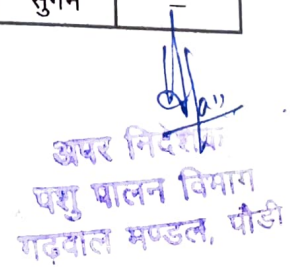 सुगम
अपर निदेशक
पशु पालन विभाग
गढ़वाल मण्डल, पौडी